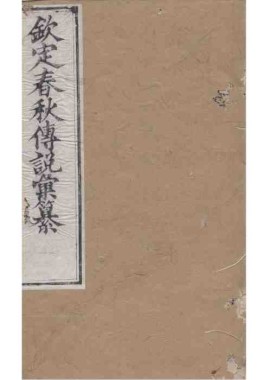 欽定春秋傳說彙纂